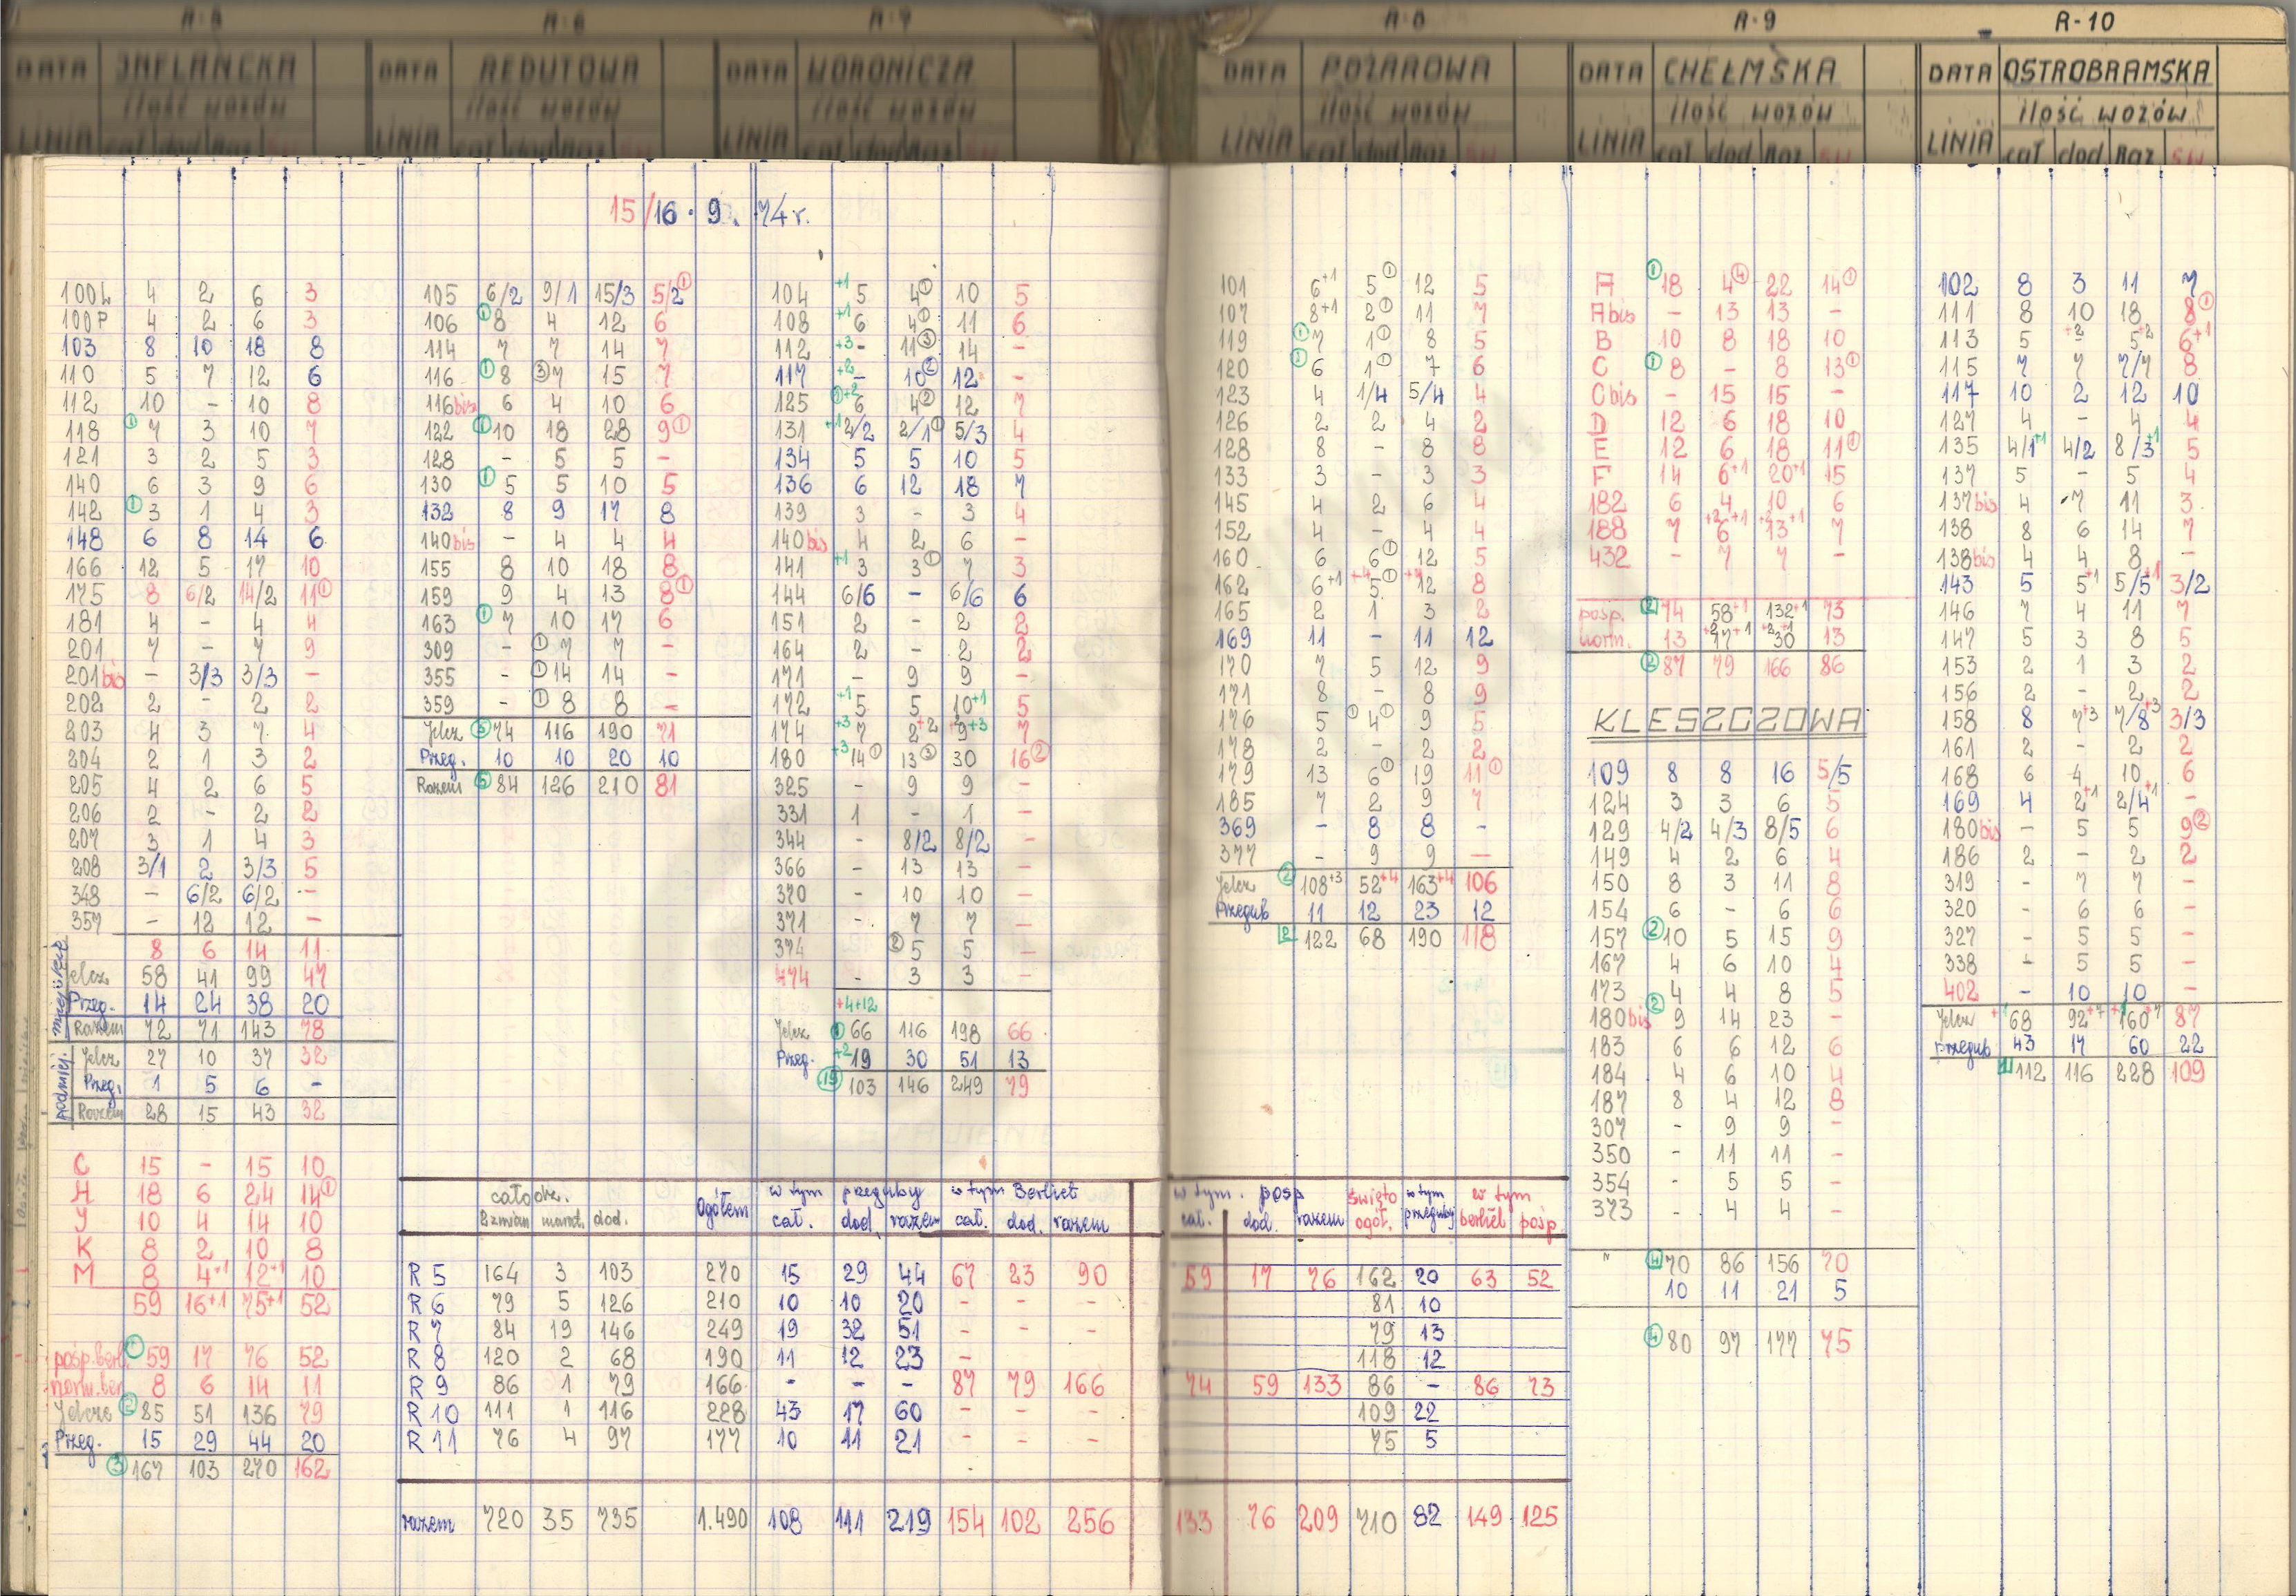 R-5 R-6 R-7 R-8 R-9 R-10
DATA INFLANCKA DATA REDUTOWA DATA WORONICZA DATA POŻAROWA DATA CHEŁMSKA DATA OSTROBRAMSKA
ilość wozów ilość wozów ilość wozów ilość wozów ilość wozów ilość wozów
LINIA cał dod Raz LINIA cał dod Raz LINIA cał dod Raz LINIA cał dod Raz św LINIA cał dod Raz św LINIA cał dod Raz św
15/16.9.74r.
100L 4 2 6 3
100P 4 2 6 3
103 8 10 18 8
110 5 7 12 6
112 10 - 10 8
118 ① 7 3 10 7
121 3 2 5 3
140 6 3 9 6
142 ① 3 1 4 3
148 6 8 14 6
166 12 5 17 10
175 8 6/2 14/2 11①
181 4 - 4 4
201 7 - 7 9
201bis - 3/3 3/3 -
202 2 - 2 2
203 4 3 7 4
204 2 1 3 2
205 4 2 6 5
206 2 - 2 2
207 3 1 4 3
208 3/1 2 3/3 5
348 - 6/2 6/2 -
357 - 12 12 -
miejskie
8 6 14 11
Jelcz 58 41 99 47
Przeg. 14 24 38 20
Razem 72 71 143 78
podmiej.
Jelcz 27 10 37 32
Przeg. 1 5 6 -
Razem 28 15 43 32
C 15 - 15 10
H 18 6 24 14①
J 10 4 14 10
K 8 2 10 8
M 8 4+1 12+1 10
59 16+1 75+1 52
pośp.berl. ① 59 17 76 52
norm.ber 8 6 14 11
Jelcze ② 85 51 136 79
Przeg. 15 29 44 20
③ 167 103 270 162
105 6/2 9/1 15/3 5/2①
106 ① 8 4 12 6
114 7 7 14 7
116 ① 8 ③7 15 7
116bis 6 4 10 6
122 ① 10 18 28 9①
128 - 5 5 -
130 ① 5 5 10 5
132 8 9 17 8
140bis - 4 4 4
155 8 10 18 8
159 9 4 13 8①
163 ① 7 10 17 6
309 - ①7 7 -
355 - ①14 14 -
359 - ①8 8 -
Jelcz ⑤ 74 116 190 71
Przeg. 10 10 20 10
Razem ⑤ 84 126 210 81
104 +1 5 4① 10 5
108 +1 6 4① 11 6
112 +3 - 11③ 14 -
117 +2 - 10② 12 -
125 ①+2 6 4② 12 7
131 +1 2/2 2/1① 5/3 4
134 5 5 10 5
136 6 12 18 7
139 3 - 3 4
140bis 4 2 6 -
141 +1 3 3① 7 3
144 6/6 - 6/6 6
151 2 - 2 2
164 2 - 2 2
171 - 9 9 -
172 +1 5 5 10+1 5
174 +3 7 2+2 9+3 7
180 +3 14① 13③ 30 16②
325 - 9 9 -
331 1 - 1 -
344 - 8/2 8/2 -
366 - 13 13 -
370 - 10 10 -
371 - 7 7 -
374 ②5 5 -
474 - 3 3 -
+4+12
Jelcz ① 66 116 198 66
Przeg. +2 19 30 51 13
⑲ 103 146 249 79
101 6+1 5① 12 5
107 8+1 2① 11 7
119 ① 7 1① 8 5
120 ① 6 1① 7 6
123 4 1/4 5/4 4
126 2 2 4 2
128 8 - 8 8
133 3 - 3 3
145 4 2 6 4
152 4 - 4 4
160 6 6① 12 5
162 6+1 +4 5① 12 8
165 2 1 3 2
169 11 - 11 12
170 7 5 12 9
171 8 - 8 9
176 5 ①4① 9 5
178 2 - 2 2
179 13 6① 19 11①
185 7 2 9 7
369 - 8 8 -
377 - 9 9 -
Jelcz ② 108+3 52+4 163+4 106
Przegub 11 12 23 12
2 122 68 190 118
A ① 18 4④ 22 14①
A bis - 13 13 -
B 10 8 18 10
C ① 8 - 8 13①
C bis - 15 15 -
D 12 6 18 10
E 12 6 18 11①
F 14 6+1 20+1 15
182 6 4 10 6
188 7 6+2+1 13+2+1 7
432 - 7 7 -
pośp. 2 74 58+1 132+1 73
norm. 13 17+2+1 30+2+1 13
② 87 79 166 86
KLESZCZOWA
109 8 8 16 5/5
124 3 3 6 5
129 4/2 4/3 8/5 6
149 4 2 6 4
150 8 3 11 8
154 6 - 6 6
157 ② 10 5 15 9
167 4 6 10 4
173 4 4 8 5
180bis ② 9 14 23 -
183 6 6 12 6
184 4 6 10 4
187 8 4 12 8
307 - 9 9 -
350 - 11 11 -
354 - 5 5 -
373 - 4 4 -
" 4 70 86 156 70
10 11 21 5
④ 80 97 177 75
102 8 3 11 7
111 8 10 18 8①
113 5 +2 5+2 6+1
115 7 7 7/7 8
117 10 2 12 10
127 4 - 4 4
135 4/1+1 4/2 8/3+1 5
137 5 - 5 4
137bis 4 7 11 3
138 8 6 14 7
138bis 4 4 8 -
143 5 5+1 5/5+1 3/2
146 7 4 11 7
147 5 3 8 5
153 2 1 3 2
156 2 - 2 2
158 8 7+3 7/8+3 3/3
161 2 - 2 2
168 6 4 10 6
169 4 2+1 2/4+1 -
180bis - 5 5 9②
186 2 - 2 2
319 - 7 7 -
320 - 6 6 -
327 - 5 5 -
338 - 5 5 -
402 - 10 10 -
Jelcz +1 68 92+7 160+7 87
przegub 43 17 60 22
1 112 116 228 109
całodz. Ogółem w tym przeguby w tym Berliet w tym pośp święto w tym w tym
2 zmian marat. dod. cał. dod. razem cał. dod. razem cał. dod. razem ogół. przeguby berliet pośp.
R 5 164 3 103 270 15 29 44 67 23 90 59 17 76 162 20 63 52
R 6 79 5 126 210 10 10 20 - - - 81 10
R 7 84 19 146 249 19 32 51 - - - 79 13
R 8 120 2 68 190 11 12 23 - 118 12
R 9 86 1 79 166 - - - 87 79 166 74 59 133 86 - 86 73
R 10 111 1 116 228 43 17 60 - - - 109 22
R 11 76 4 97 177 10 11 21 - - - 75 5
razem 720 35 735 1.490 108 111 219 154 102 256 133 76 209 710 82 149 125